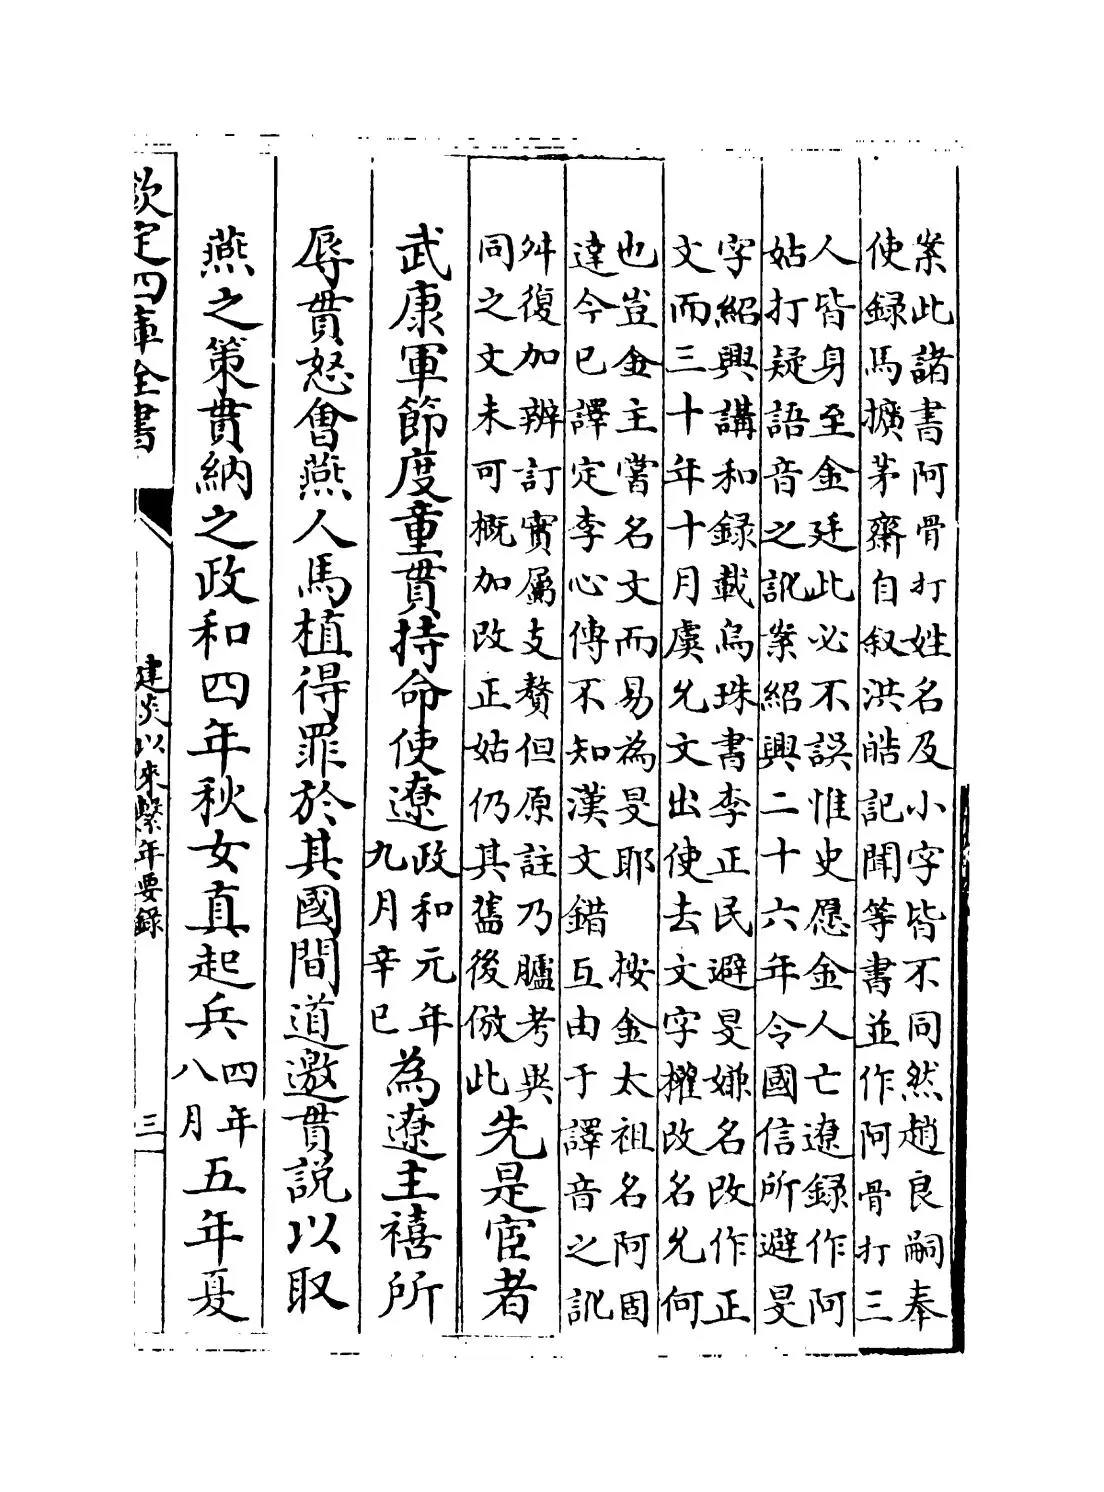 案此諸書阿骨打姓名及小字皆不同然趙良嗣奉
使録馬擴茅齋自叙洪皓記聞等書並作阿骨打三
人皆身至金廷此必不誤惟史愿金人亡遼録作阿
姑打疑語音之訛案紹興二十六年令國信所避旻
字紹興講和録載烏珠書李正民避旻嫌名改作正
文而三十年十月虞允文出使去文字櫂改名允何
也豈金主嘗名文而易為旻耶　按金太祖名阿固
達今已譯定李心傳不知漢文錯互由于譯音之訛
舛復加辨訂實屬支贅但原註乃臚考與
同之文未可概加改正姑仍其舊後倣此
先是宦者
武康軍節度童貫持命使遼
政和元年
九月辛巳
為遼主禧所
辱貫怒會燕人馬植得罪於其國間道邀貫説以取
燕之策貫納之政和四年秋女真起兵
四年
八月
五年夏
欽定四庫全書
建炎以來繫年要錄
三